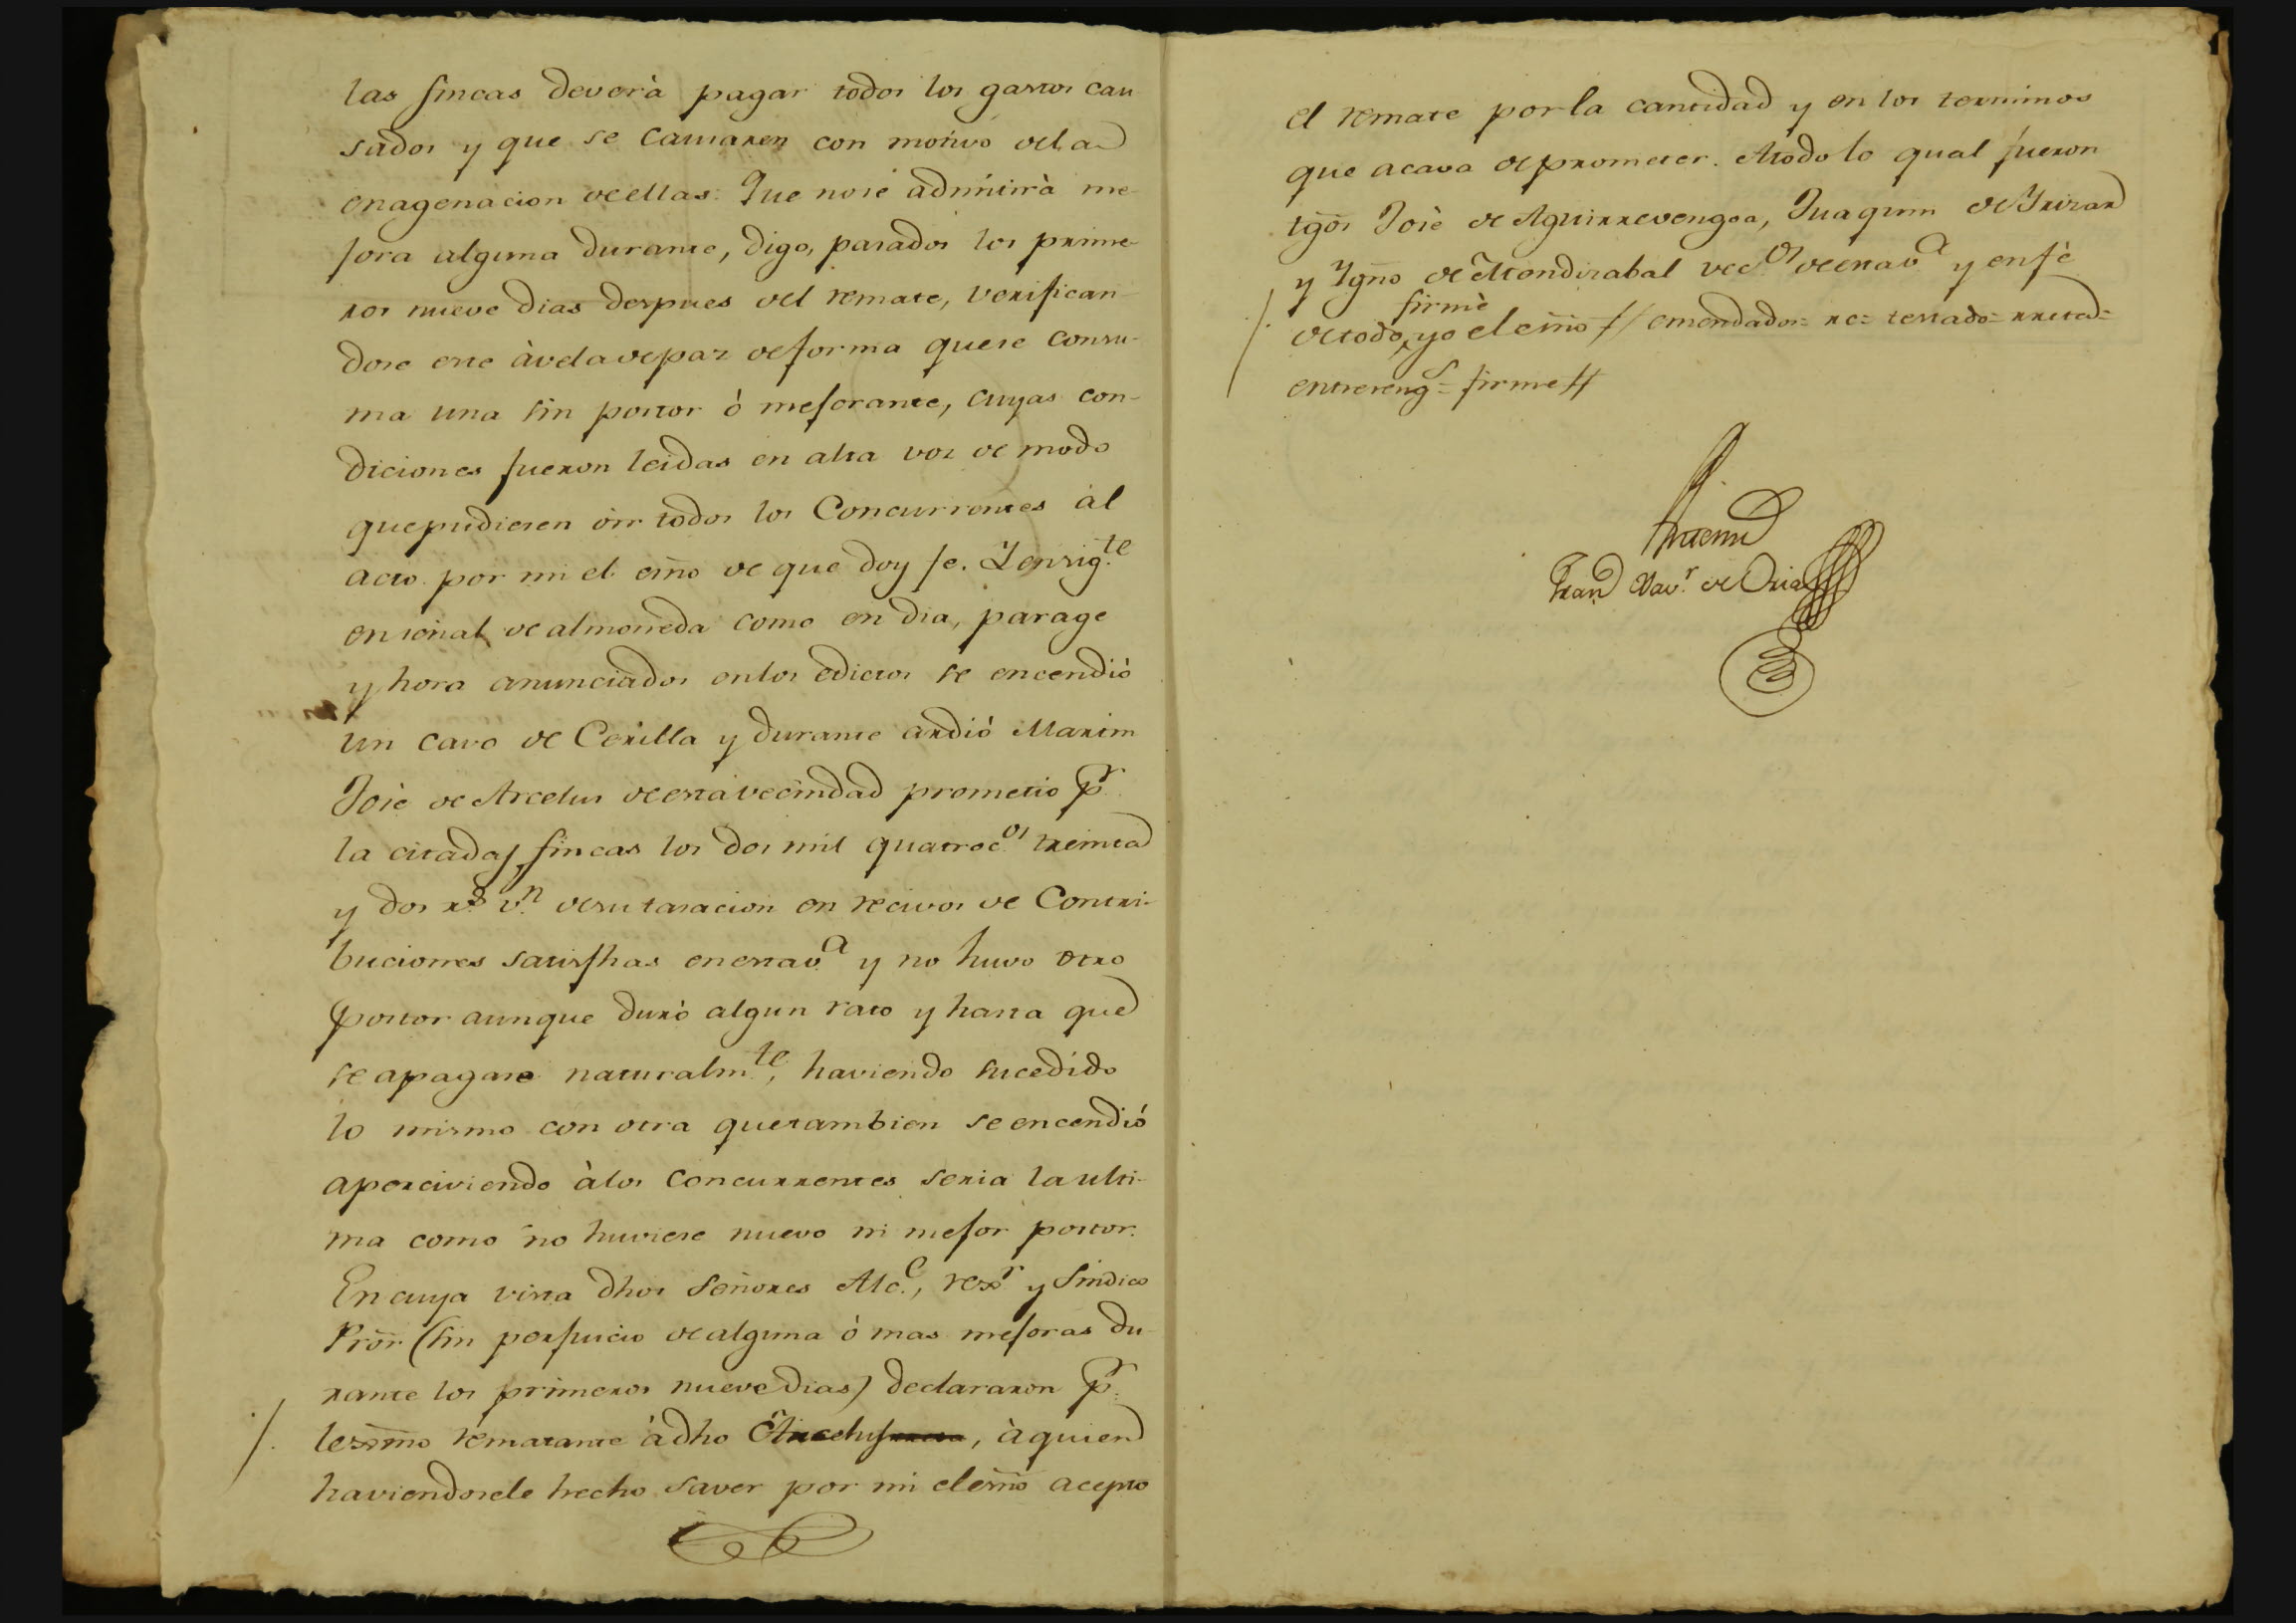 las fincas deverà pagar todos los gastos cau
sados y que se causaren con motivo de la
enagenacion de ellas: Que no se admitirà me-
jora alguna durante, digo, pasados los prime-
ros nueve dias despues del remate, verifican-
dose este à vela de paz de forma que se consu-
ma una sin postor ò mejorante, cuyas con-
diciones fueron leidas en alta voz de modo
que pudiesen òir todos los Concurrentes àl
acto por mi el esño de que doy fe. Y en sig.te
en señal de almoneda como en dia, parage
y hora anunciados en los edictos se encendiò
un cavo de Cerilla y durante ardiò Martin
Josè de Arcelus de esta vecindad prometio p.r
la citadas fincas los dos mil quatroc.os treinta
y dos r.s v.n de su tasacion en recivos de Contri-
buciones satisfhas en esta v.a y no huvo otro
postor aunque durò algun rato y hasta que
se apagase naturalm.te, haviendo sucedido
lo mismo con otra que tambien se encendiò
aperciviendo à los concurrentes seria la ulti-
ma como no huviese nuevo ni mejor postor.
En cuya vista dhos Señores Alc.e, rex.r y Sindico
Prõr (sin perjuicio de alguna ò mas mejoras du-
rante los primeros nueve dias) declararon p.r
lexmo rematante à dho Arcelus, à quien
haviendosele hecho saver por mi el esño acepto
el remate por la cantidad y en los terminos
que acava de prometer. A todo lo qual fueron
tgõs Josè de Aguirrevengoa, Juaquin de Yrizar
y Ygño de Mondizabal vec.os de esta v.a y en fè
firmè
de todo, yo el esño // emendados= rc= testado= rreted=
entrereng.s= firme //
Antemi
Fran Xav.r de Oria